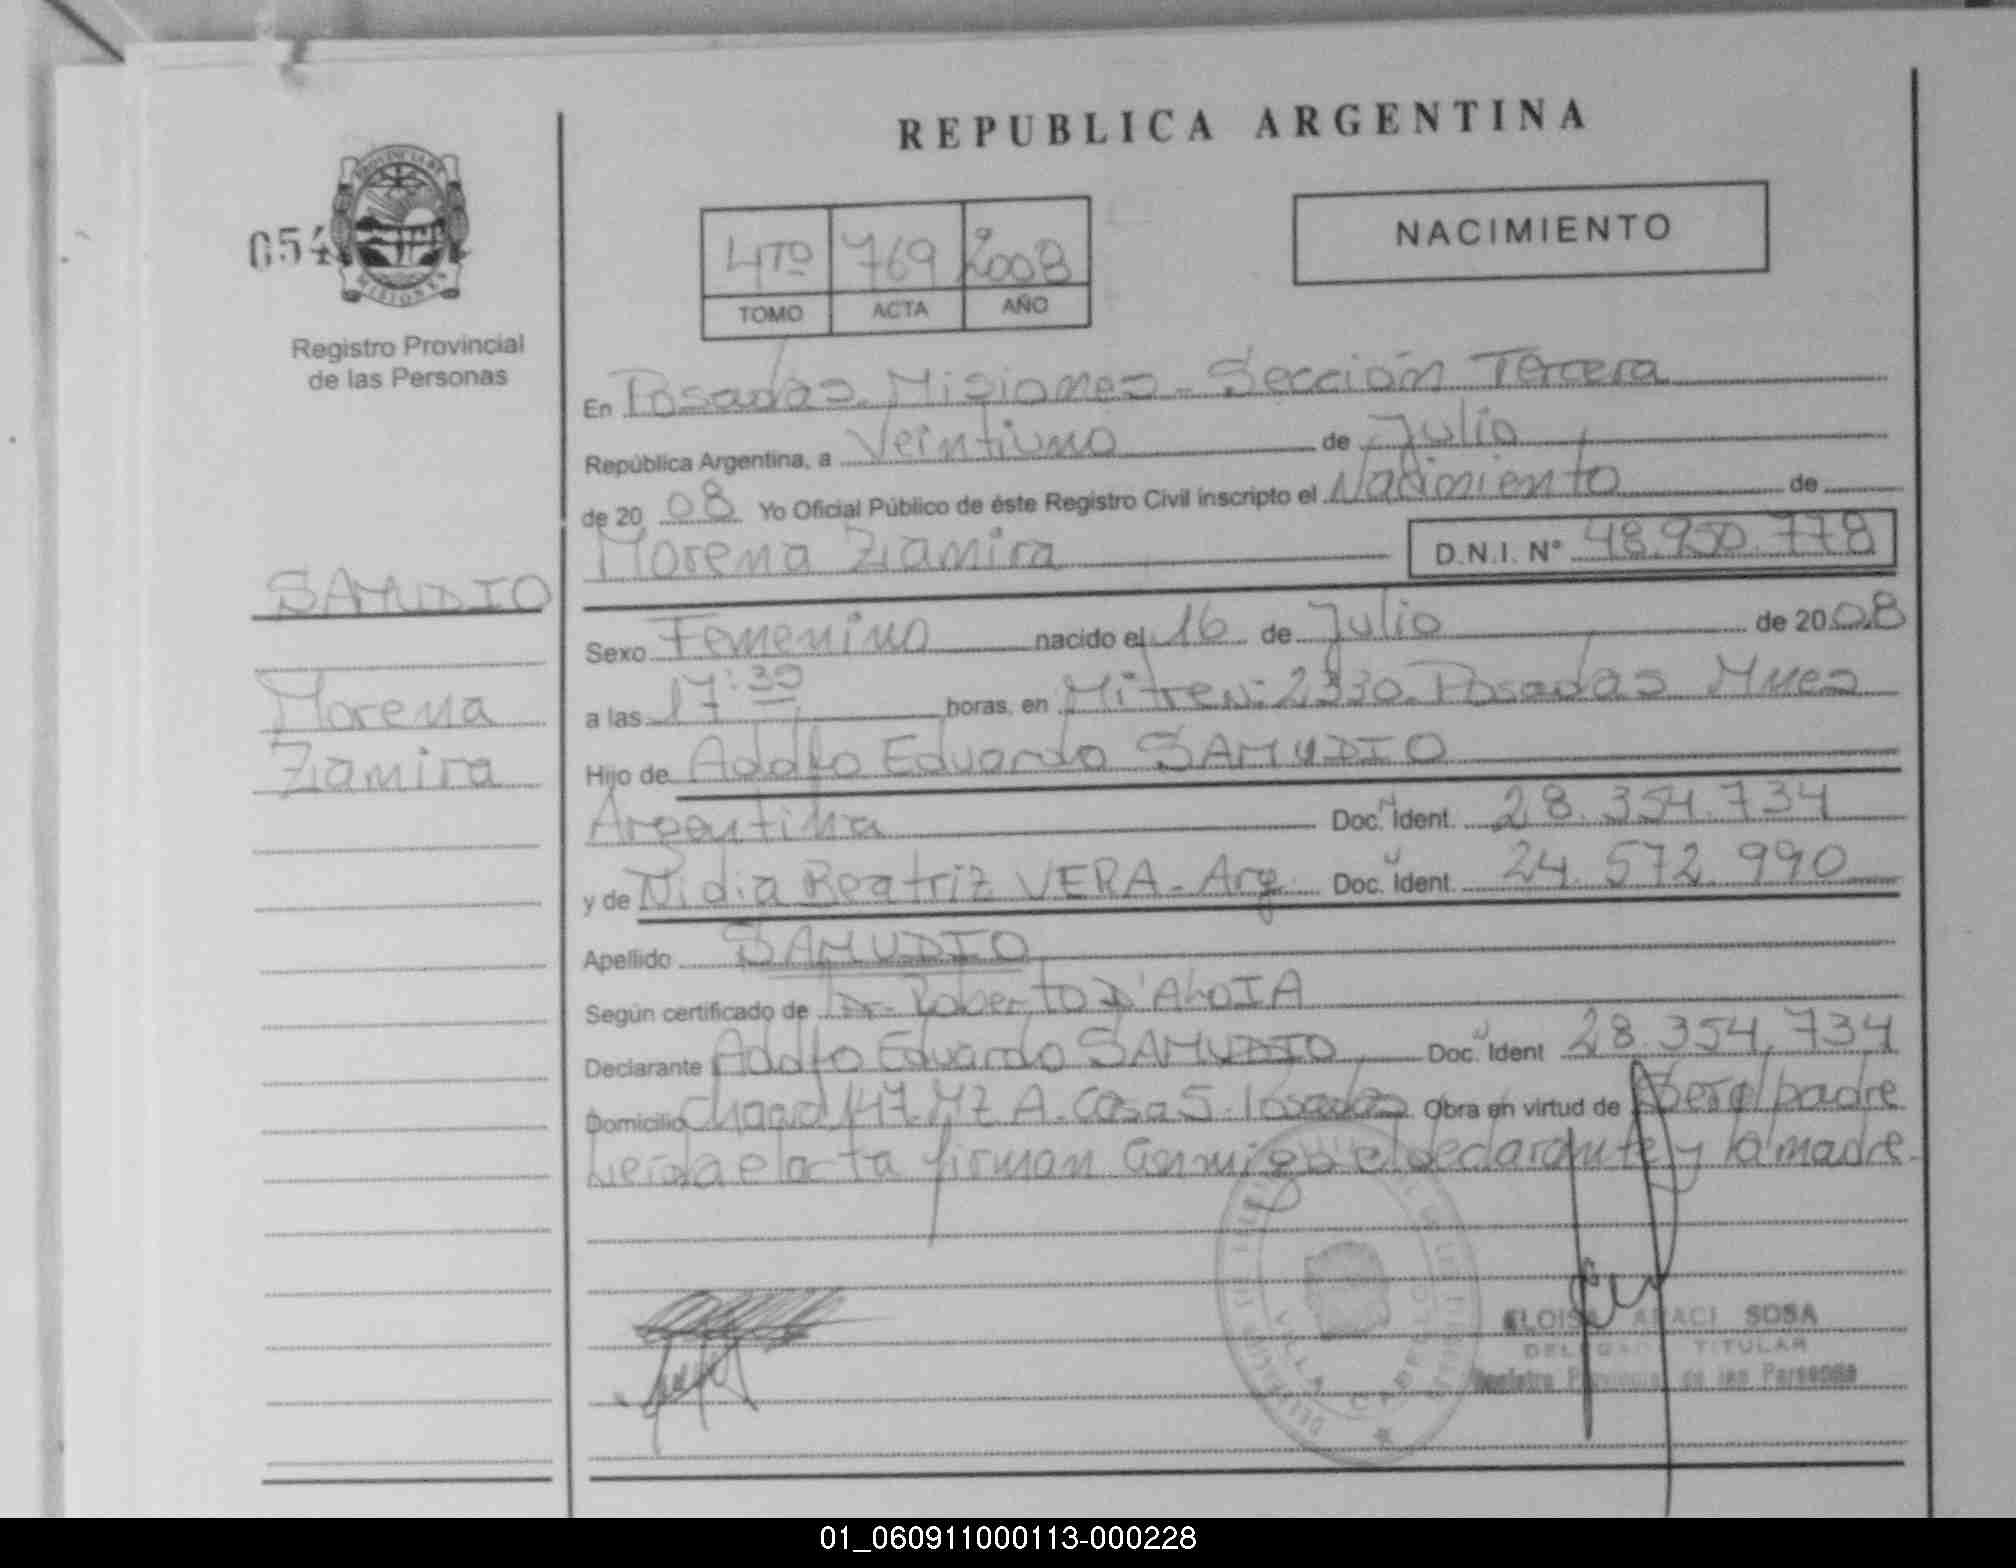 REPUBLICA ARGENTINA
054
PROVINCIA DE
MISIONES
Registro Provincial
de las Personas
4TO 769 2008
TOMO ACTA AÑO
NACIMIENTO
En Posadas Misiones - Sección Tercera
República Argentina, a Veintiuno de Julio
de 20 08 Yo Oficial Público de éste Registro Civil inscripto el Nacimiento de
Morena Ziamira D.N.I. N° 48.950.778
SAMUDIO
Morena
Ziamira
Sexo Femenino nacido el 16 de Julio de 20 08
a las 17:30 horas, en Mitre N: 2330. Posadas Mnes
Hijo de Adolfo Eduardo SAMUDIO
Argentina Doc. Ident. 28.354.734
y de Nidia Beatriz VERA - Arg. Doc. Ident. 24.572.990
Apellido SAMUDIO
Según certificado de Dr. Roberto D'ALOIA
Declarante Adolfo Eduardo SAMUDIO Doc. Ident 28.354.734
Domicilio 147. MZ A. Casa 5. Posadas Obra en virtud de ser el padre
Leida el acta firman conmigo el declarante y la madre.
VILLA CABELLO
ELOISA ARACI SOSA
DELEGADA TITULAR
Registro Provincial de las Personas
01_060911000113-000228